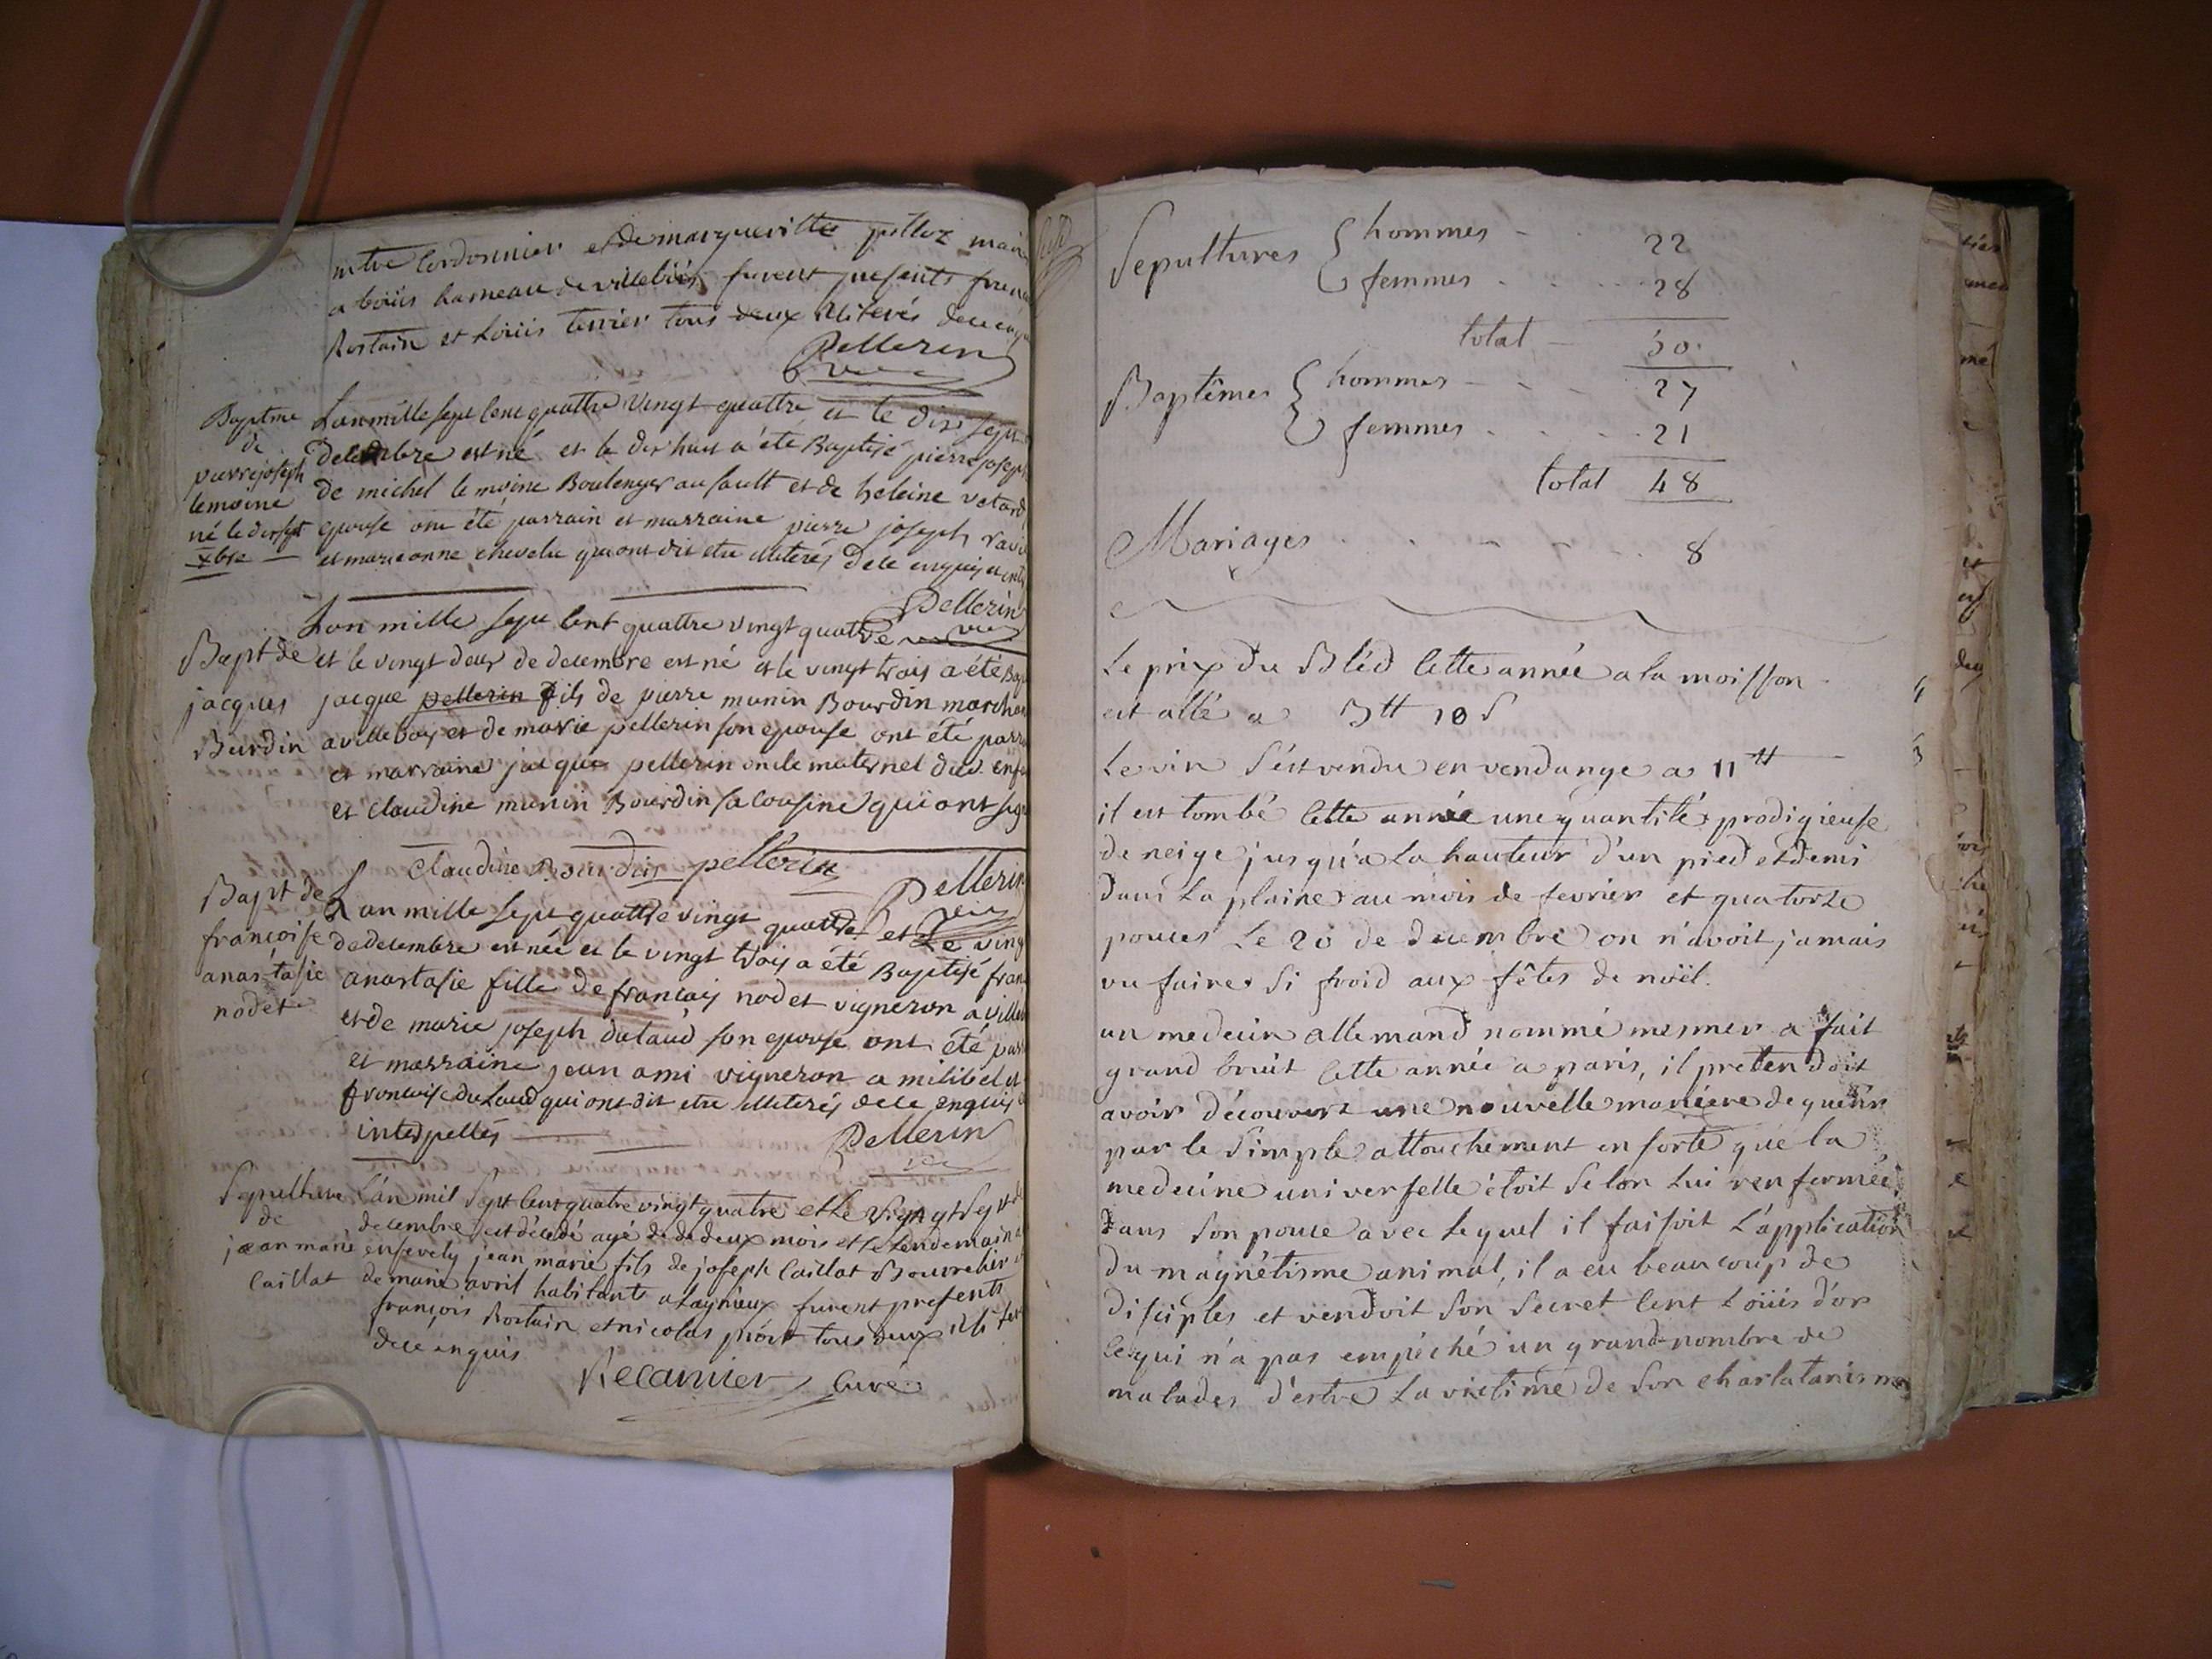 mtre Cordonnier et de marguerittes pilloz
a boüis hameau de villebois, furent presents
Rostain et Loüis terrier tous deux illiterés de ce
Pellerin
vic
Baptme
de
pierre joseph
lemoine
né le dix sept
xbre
L'an mille sept cent quattre vingt quattre et le dix sept
decembre est né et le dix huit a été Baptisé pierre joseph
de michel le moine Boulenger au sault et de heleine vetard
epouse ont été parrain et marraine pierre joseph
et marieanne chevelu qui ont dit etre illiterés de ce enquis et
Pellerin
vic
Bapt de
jacques
Burdin
L'an mille sept cent quattre vingt quattre
et le vingt deux de decembre est né et le vingt trois a été
jacque pellerin fils de pierre munin Bourdin
a villebois et de marie pellerin son epouse ont été
et marraine jacques pellerin oncle maternel dud.
et claudine munin Bourdin sa cousine qui ont
claudine Bourdin pellerin
Pellerin
vic
Bapt de
françoise
anastasie
nodet
L'an mille sept quattre vingt quattre et le
de decembre est née et le vingt trois a été Baptisé
anastasie fille de françois nodet vigneron a
et de marie joseph dulaud son epouse ont été
et marraine jean ami vigneron a milibel et
francoise dulaud qui ont dit etre illiterés de ce enquis
interpellés
Pellerin
vic
Sepulture
de
jean marie
Caillat
L'an mil Sept Cent quatre vingt quatre et le vingt Sept de
decembre est décédé agé de de deux mois et le lendemain a
ensevely jean marie fils de joseph Caillat Bourrelier
de marie avril habitants a Lagnieux furent presents
françois Rostain et nicolas tous deux
de ce enquis
Recamier Curé
Sepultures { hommes 22
femmes 28
total 50
Baptêmes { hommes 27
femmes 21
total 48
Mariages 8
Le prix du Bled Cette année a la moisson
est allé a 3tt 10 s
Le vin s'est vendu en vendange a 11tt
il est tombé Cette année une quantité prodigieuse
de neige jusqu'a La hauteur d'un pied et demi
dans La plaine au mois de fevrier et quatorze
pouces Le 20 de decembre on n'avoit jamais
vu faire Si froid aux fêtes de noël.
un medecin allemand nommé mesmer a fait
grand bruit Cette année a paris, il pretendoit
avoir découvert une nouvelle maniere de guérir
par le Simple attouchement en sorte que la
medecine universelle étoit Selon Lui renfermée
dans Son pouce avec Lequel il faisoit L'application
du magnétisme animal, il a eu beaucoup de
disciples et vendoit Son Secret Cent Loüis d'or
Ce qui n'a pas empéché un grand nombre de
malades d'estre La victime de Son charlatanisme